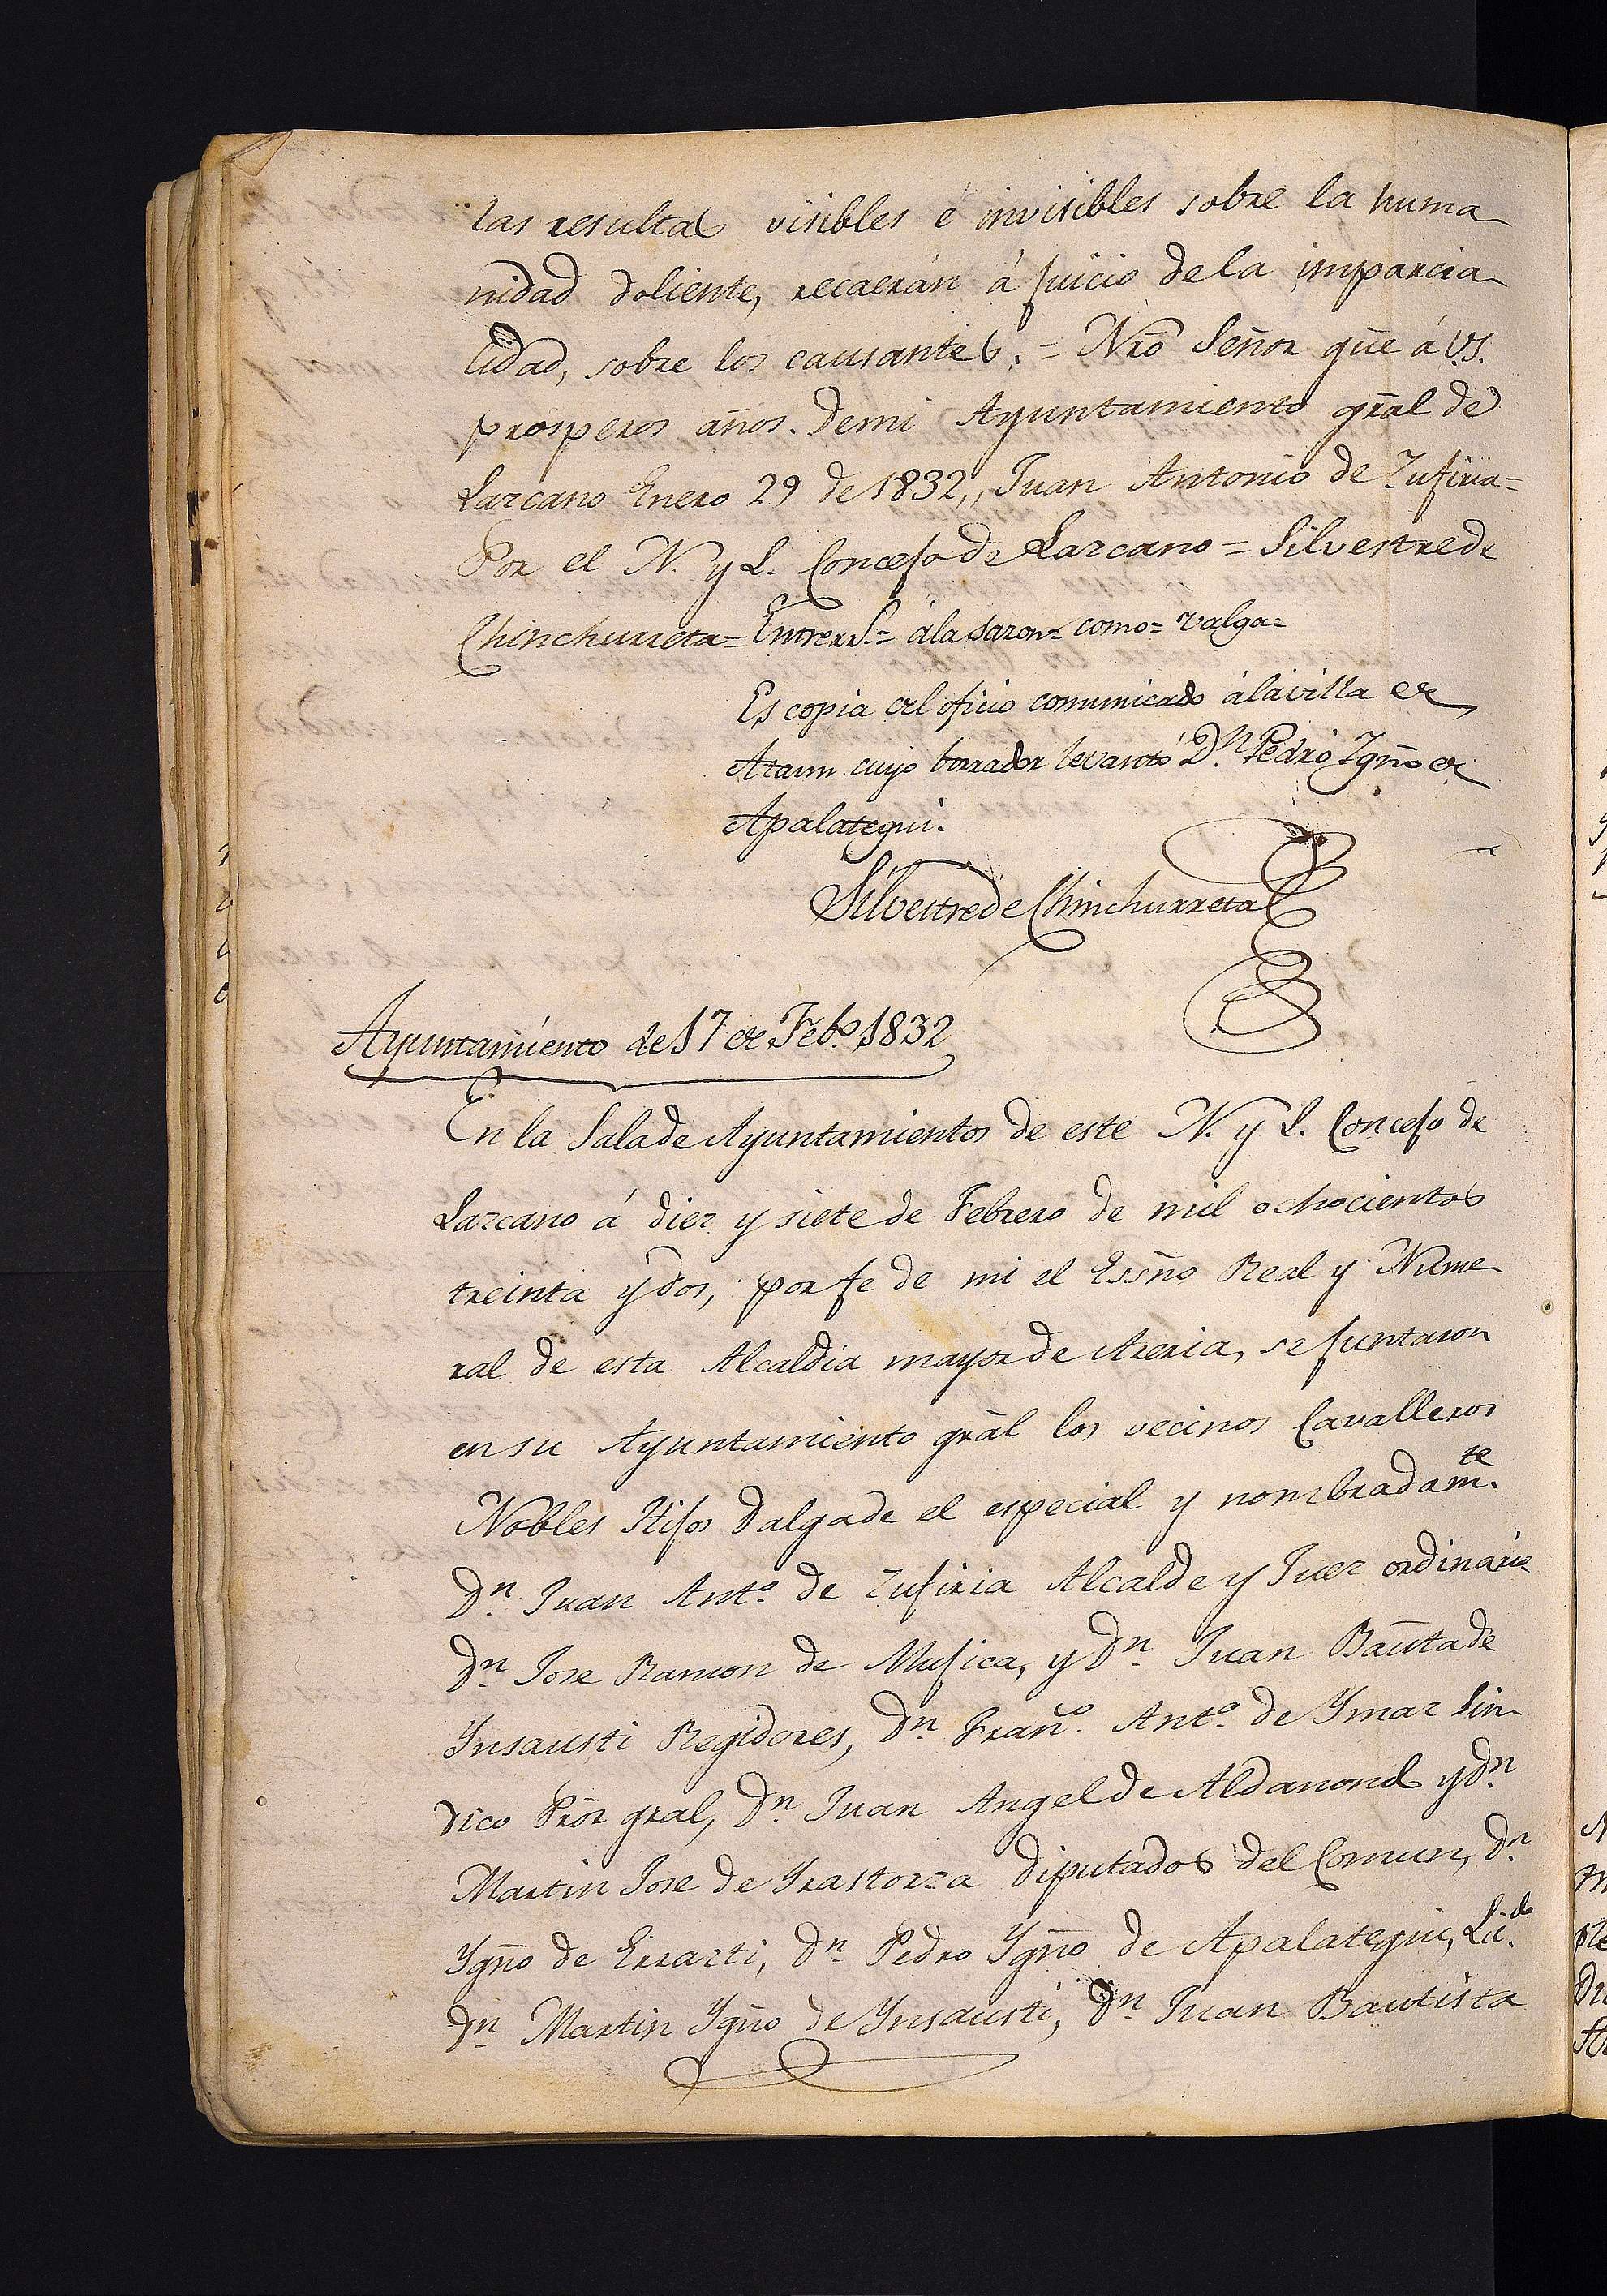 las resultas visibles é invisibles sobre la huma
nidad doliente, recaerán á juicio de la imparcia
lidad, sobre los causantes. = Nrõ Señor gũe á V.S.
prosperos años. De mi Ayuntamiento grãl de
Lazcano Enero 29 de 1832,, Juan Antonio de Zufiria =
Por el N. y L. Concejo de Lazcano = Silvestre de
Chinchurreta = Entrerr.s = á la sazon = como = valga =
Es copia del oficio comunicado á la villa de
Ataun cuyo borrador levantó D.n Pedro Ygño de
Apalategui.
Silvestre de Chinchurreta
Ayuntamiento de 17 de Feb.o 1832
En la Sala de Ayuntamientos de este N. y L. Concejo de
Lazcano á diez y siete de Febrero de mil ochocientos
treinta y dos, por fe de mi el Essño Real y Nume
ral de esta Alcaldia mayor de Areria, se juntaron
en su Ayuntamiento grãl los vecinos Cavalleros
Nobles Hijos Dalgo de el especial y nombradam.te
D.n Juan Ant.o de Zufiria Alcalde y Juez ordinario
D.n Jose Ramon de Mujica, y D.n Juan Baũta de
Ynsausti Regidores, D.n Frañ.o Ant.o de Ymaz Sin
dico Prõr gral, D.n Juan Angel de Aldanondo y D.n
Martin Jose de Yrastorza Diputados del Comun, D.n
Ygño de Errazti, D.n Pedro Ygño de Apalategui, Lic.do
D.n Martin Ygño de Ynsausti, D.n Juan Bautista